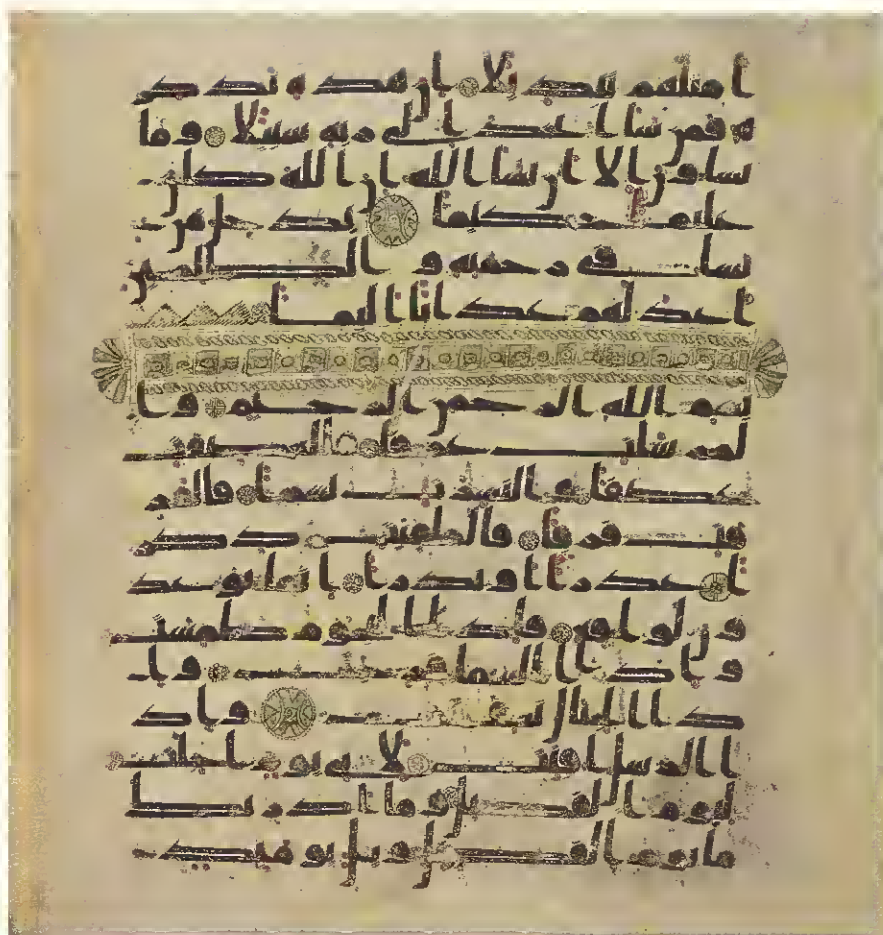 امثلهم تبديلا ان هذه تذكر
ة فمن شا اتخذ الى ربه سبيلا وما
تشاون الا ان يشا الله ان الله كان
عليما حكيما يدخل من
يشا في رحمته والظلمين
اعد لهم عذابا اليما
بسم الله الرحمن الرحيم وا
لمرسلت عرفا فالعصفت
عصفا والنشرت نشرا فالفر
قت فرقا فالملقيت ذكر
ا عذرا او نذرا انما توعد
ون لواقع فاذا النجوم طمست
واذا السما فرجت واذ
ا الجبال نسفت واذ
ا الرسل اقتت لاي يوم اجلت
ليوم الفصل وما ادريك
ما يوم الفصل ويل يوميذ